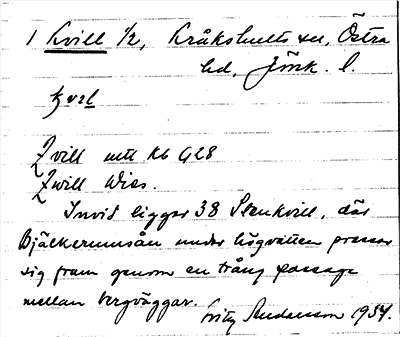 1 Kvill 1/2, Kråkshults sn, Östra
hd, Jönk. l.
Kvill mtl Kb G28
Kvill Wies.
Invid ligger 38 Stenkvill, där
Bjälkerumsån under högvatten pressar
sig fram genom en trång passage
mellan bergväggar.
Fritz Andersson 1934.